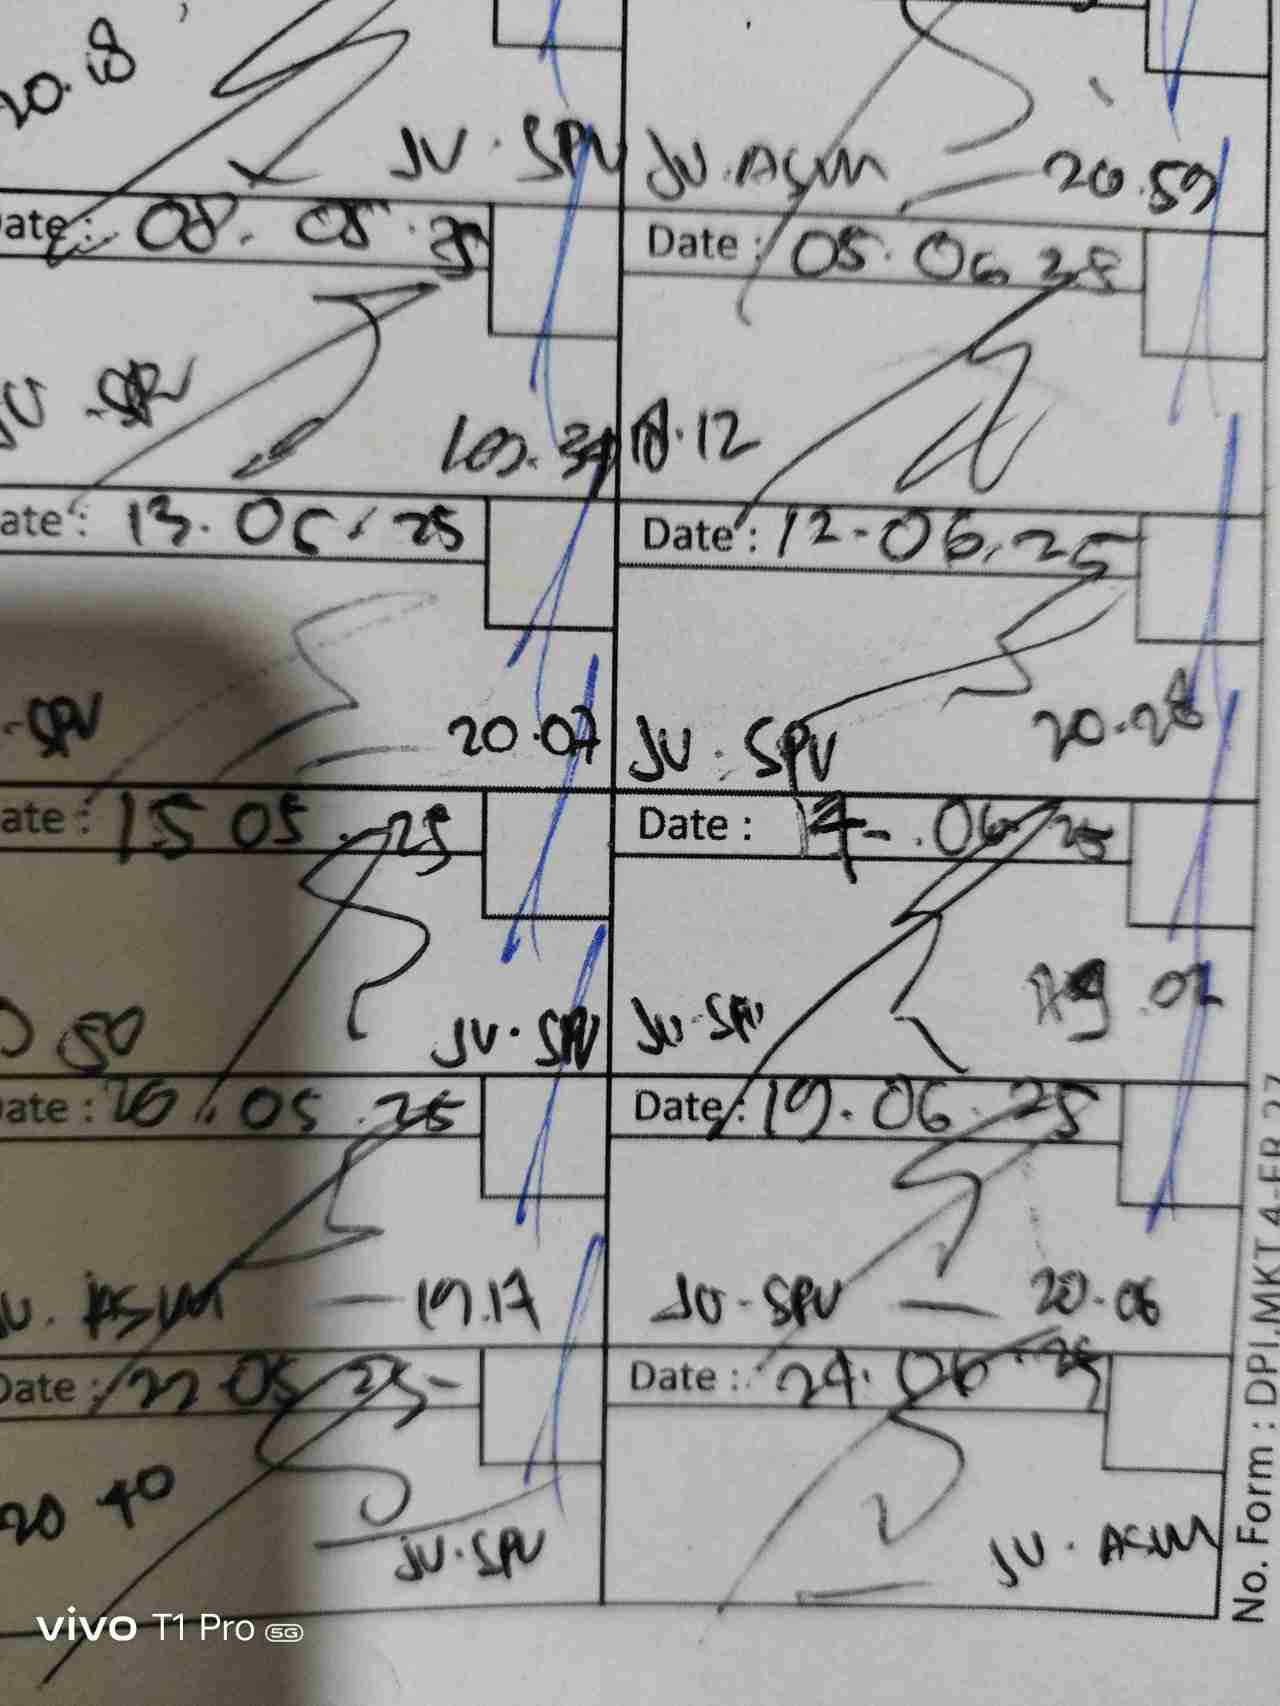 20.18
JU. SPV
JU. ASM
20.59
Date : 08. 05. 25
Date : 05. 06 25
JU - SPV
18.12
Date : 13. 05. 25
Date : 12-06.25
- SPV
20.07
JU. SPV
20.28
Date : 15 05. 25
Date : 17-.06 25
50
JU. SPV
JU-SPV
Date : 20. 05. 25
Date : 19. 06. 25
JU. ASM - 19.17
JU - SPV - 20.06
Date : 22 05 25-
Date : 24. 06. 25
20 40
JU. SPV
JU. ASM
No. Form : DPI.MKT.4-FR.27
vivo T1 Pro 5G